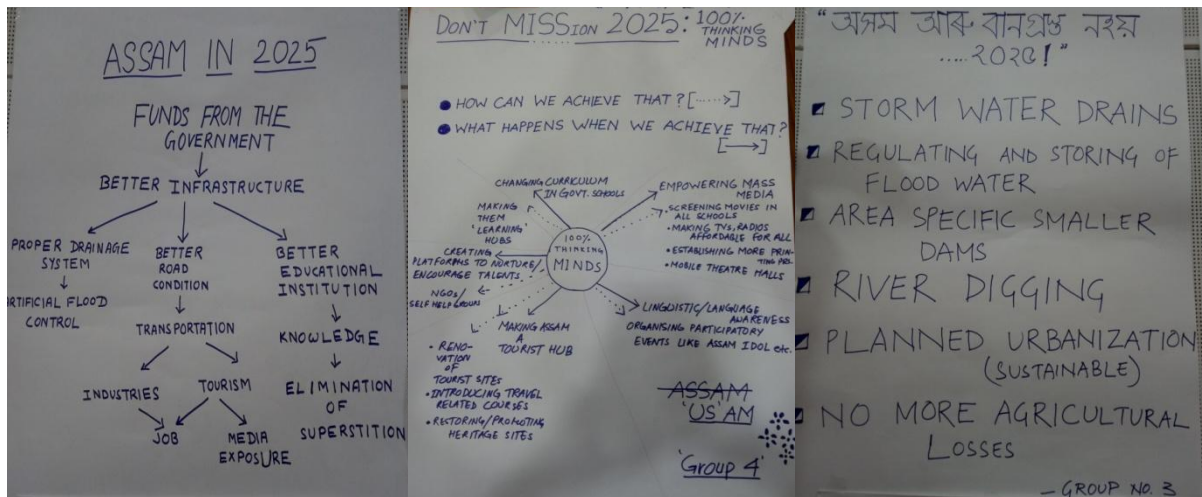 ASSAM IN 2025
FUNDS FROM THE
GOVERNMENT
BETTER INFRASTRUCTURE
PROPER DRAINAGE
SYSTEM
RTIFICIAL FLOOD
CONTROL
BETTER
ROAD
CONDITION
TRANSPORTATION
INDUSTRIES
TOURISM
JOB
MEDIA
EXPOSURE
BETTER
EDUCATIONAL
INSTITUTION
KNOWLEDGE
ELIMINATION
OF
SUPERSTITION
DON'T MISSION 2025: 100%
THINKING
MINDS
HOW CAN WE ACHIEVE THAT? [......>]
WHAT HAPPENS WHEN WE ACHIEVE THAT?
[→]
CHANGING CURRICULUM
IN GOVT. SCHOOLS
MAKING
THEM
'LEARNING'
HUBS
CREATING
PLATFORMS TO NURTURE/
ENCOURAGE TALENTS
NGOs/
SELF HELP GROUPS
100%
THINKING
MINDS
EMPOWERING MASS
MEDIA
• SCREENING MOVIES IN
ALL SCHOOLS
• MAKING TVs, RADIOS
AFFORDABLE FOR ALL
• ESTABLISHING MORE PRIN-
TING
• MOBILE THEATRE HALLS
LINGUISTIC/LANGUAGE
AWARENESS
ORGANISING PARTICIPATORY
EVENTS LIKE ASSAM IDOL etc.
MAKING ASSAM
A
TOURIST HUB
• RENO-
VATION
OF
TOURIST SITES
• INTRODUCING TRAVEL
RELATED COURSES
• RESTORING/PROMOTING
HERITAGE SITES
ASSAM
'US'AM
'Group 4'
"অসম আৰু বানগ্ৰস্ত নহয়
....২০২৫!"
STORM WATER DRAINS
REGULATING AND STORING OF
FLOOD WATER
AREA SPECIFIC SMALLER
DAMS
RIVER DIGGING
PLANNED URBANIZATION
(SUSTAINABLE)
NO MORE AGRICULTURAL
LOSSES
- GROUP NO. 3